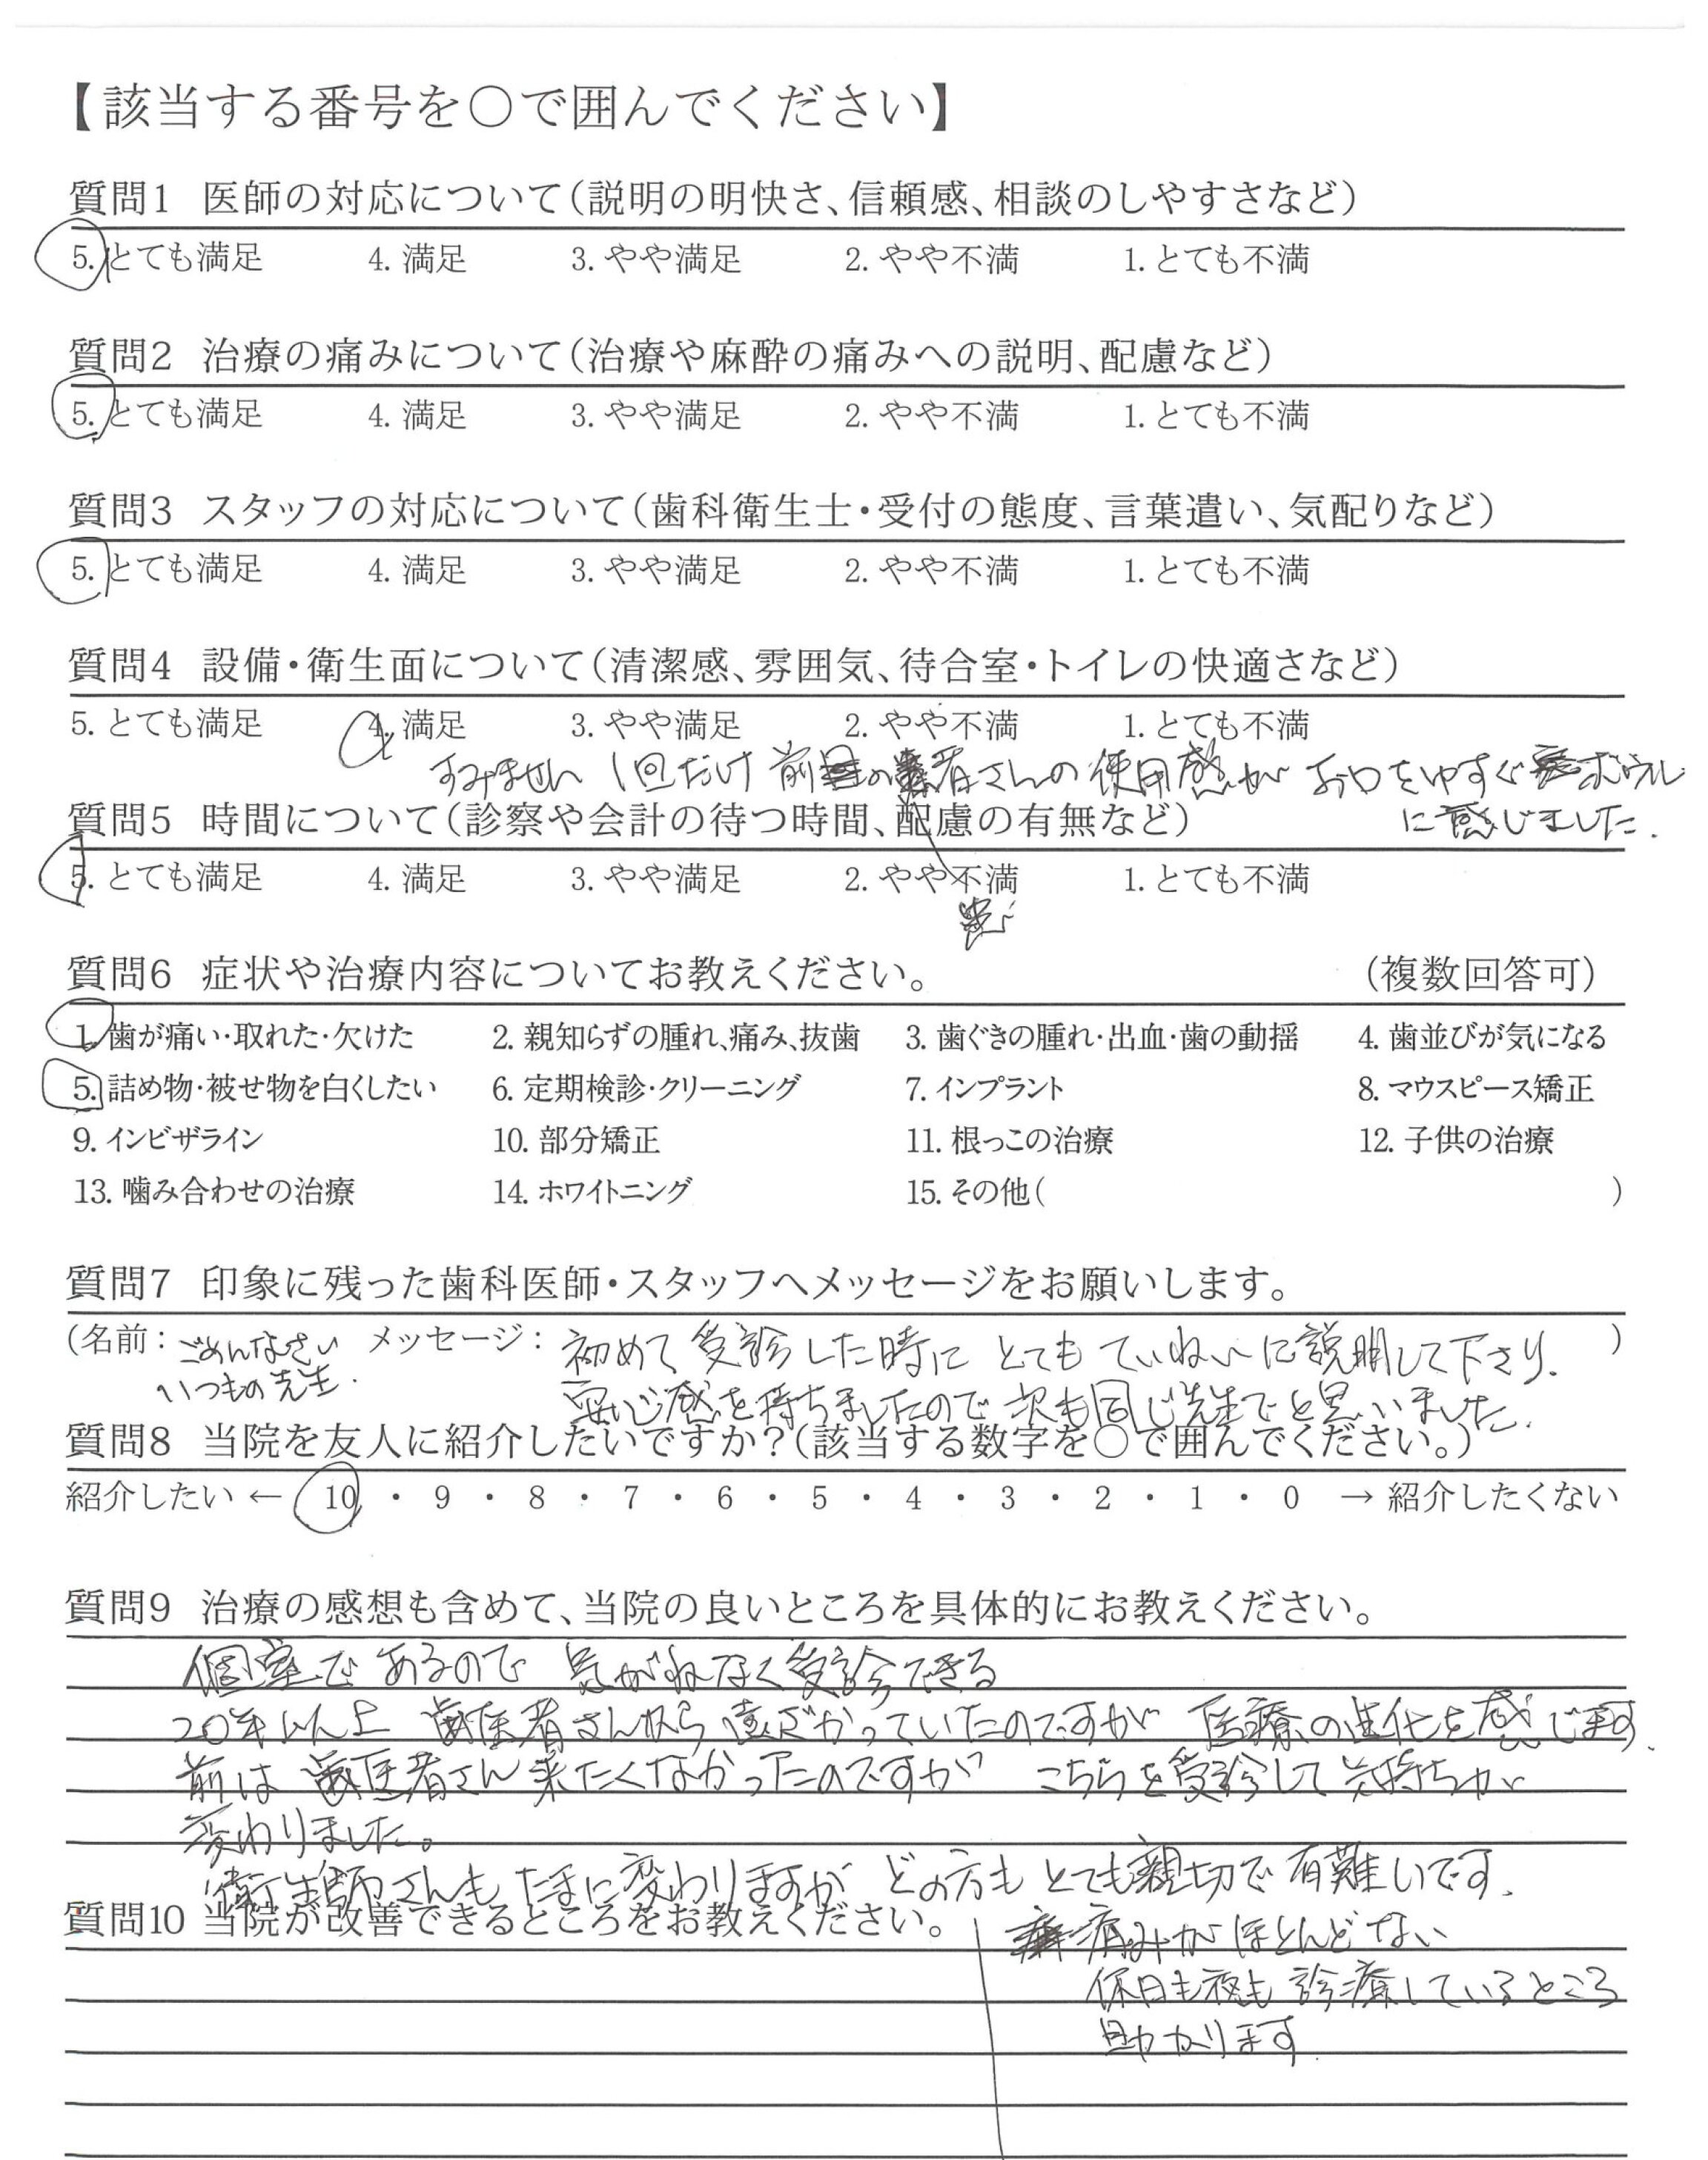 【該当する番号を○で囲んでください】
質問1 医師の対応について(説明の明快さ、信頼感、相談のしやすさなど)
5. とても満足 4. 満足 3. やや満足 2. やや不満 1. とても不満
質問2 治療の痛みについて(治療や麻酔の痛みへの説明、配慮など)
5. とても満足 4. 満足 3. やや満足 2. やや不満 1. とても不満
質問3 スタッフの対応について(歯科衛生士・受付の態度、言葉遣い、気配りなど)
5. とても満足 4. 満足 3. やや満足 2. やや不満 1. とても不満
質問4 設備・衛生面について(清潔感、雰囲気、待合室・トイレの快適さなど)
5. とても満足 4. 満足 3. やや満足 2. やや不満 1. とても不満
すみません 1回だけ 前の患者さんの使用感が お口をゆすぐボウル
に感じました.
質問5 時間について(診察や会計の待つ時間、配慮の有無など)
5. とても満足 4. 満足 3. やや満足 2. やや不満 1. とても不満
質問6 症状や治療内容についてお教えください。 (複数回答可)
1. 歯が痛い・取れた・欠けた 2. 親知らずの腫れ、痛み、抜歯 3. 歯ぐきの腫れ・出血・歯の動揺 4. 歯並びが気になる
5. 詰め物・被せ物を白くしたい 6. 定期検診・クリーニング 7. インプラント 8. マウスピース矯正
9. インビザライン 10. 部分矯正 11. 根っこの治療 12. 子供の治療
13. 噛み合わせの治療 14. ホワイトニング 15. その他( )
質問7 印象に残った歯科医師・スタッフへメッセージをお願いします。
(名前: ごめんなさい メッセージ: 初めて受診した時に とても ていねいに説明して下さり. )
いつもの先生. 感を持ちましたので 次も同じ先生でと思いました.
質問8 当院を友人に紹介したいですか?(該当する数字を○で囲んでください。)
紹介したい ← 10 ・ 9 ・ 8 ・ 7 ・ 6 ・ 5 ・ 4 ・ 3 ・ 2 ・ 1 ・ 0 → 紹介したくない
質問9 治療の感想も含めて、当院の良いところを具体的にお教えください。
個室であるので 気がねなく受診できる
20年以上 歯医者さんから遠ざかっていたのですが 医療の進化を感じます.
前は 歯医者さん来たくなかったのですが こちらを受診して気持ちが
変わりました。
衛生師さんも たまに変わりますが どの方も とても親切で 有難いです.
質問10 当院が改善できるところをお教えください。
痛みがほとんどない
休日も夜も 診療しているところ
助かります.